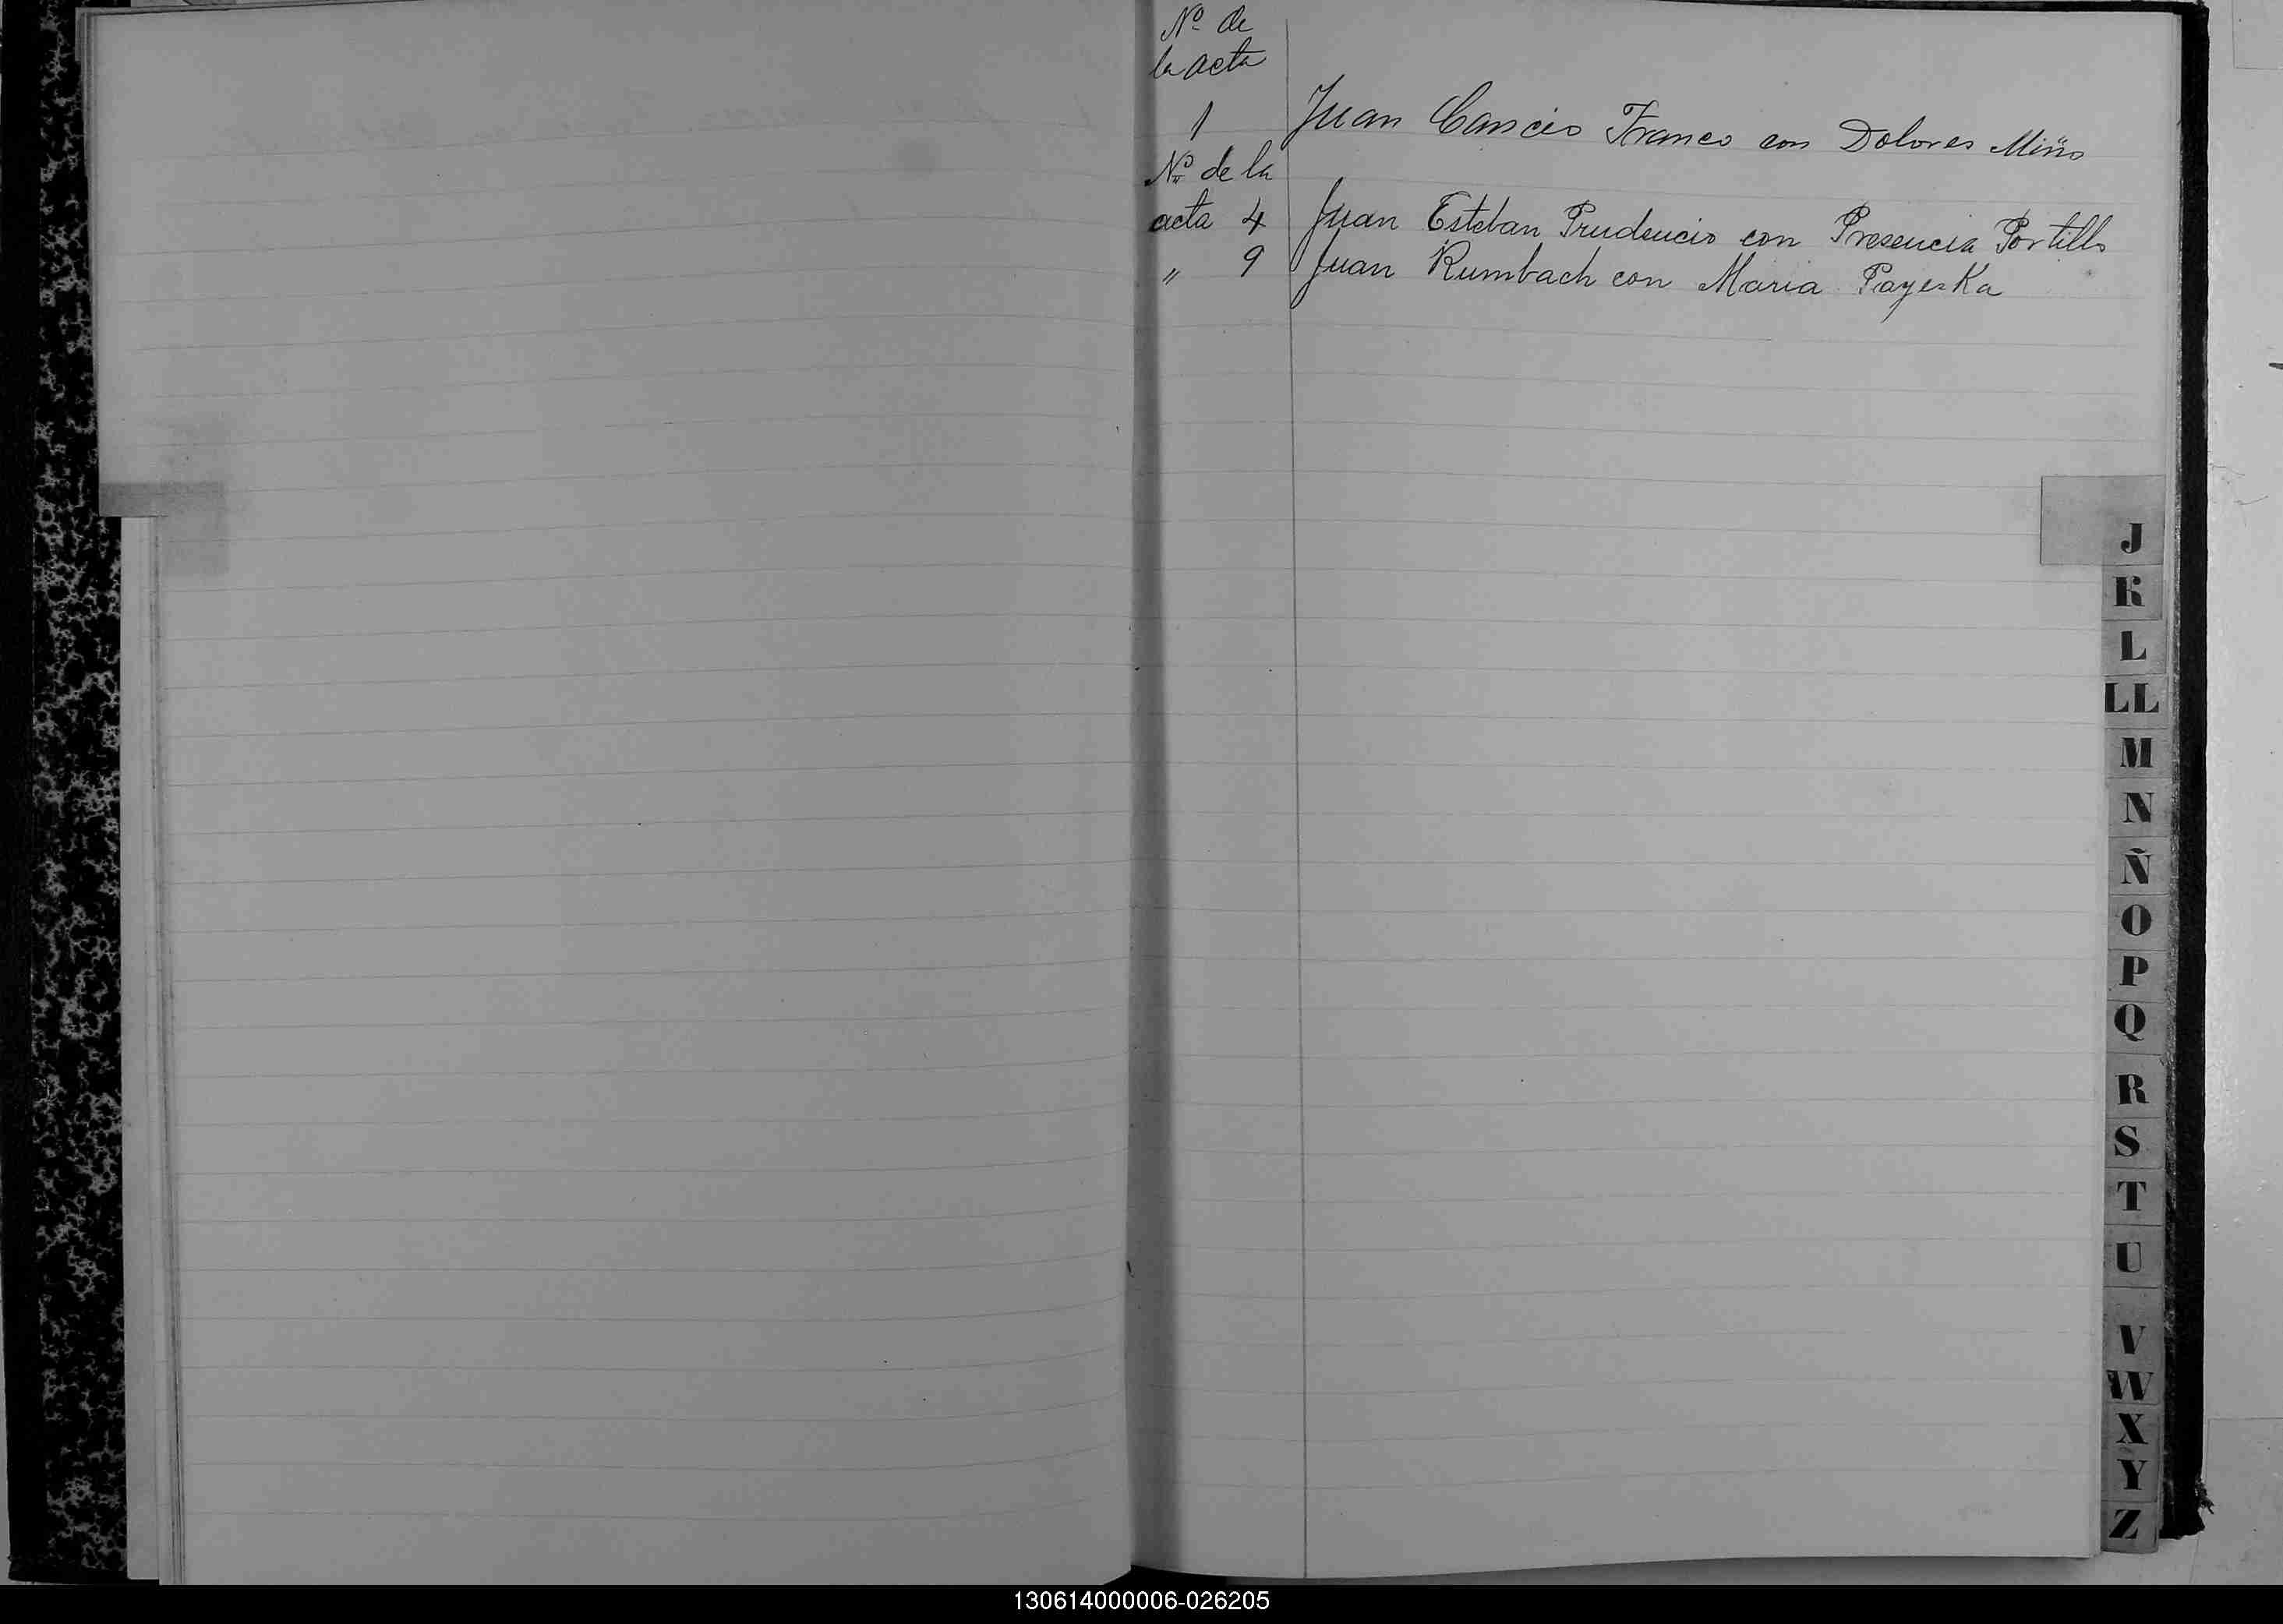 Nº de
la acta
1 Juan Cancio Franco con Dolores Miño
Nº de la
acta 4 Juan Esteban Prudencio con Presencia Portillo
" 9 Juan Rumbach con Maria Payeska
J
K
L
LL
M
N
Ñ
O
P
Q
R
S
T
U
V
W
X
Y
Z
130614000006-026205